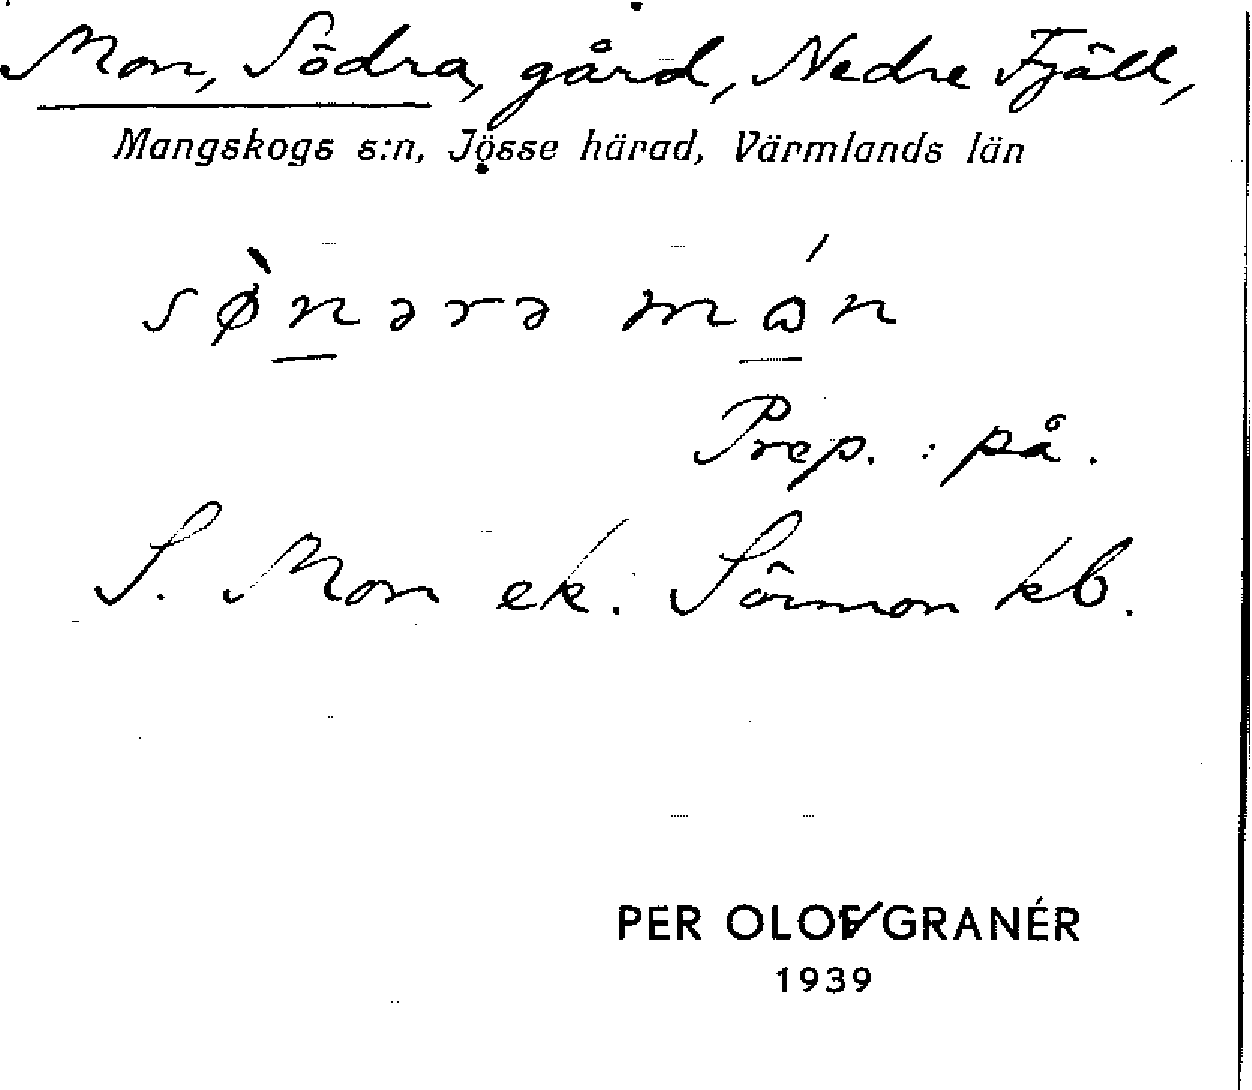 Mon, Södra, gård, Nedre Fjäll,
Mangskogs s:n, Jösse härad, Värmlands län
sø̀nərə mán
Prep. : på.
S. Mon ek. Sörmon kb.
PER OLOF GRANÉR
1939